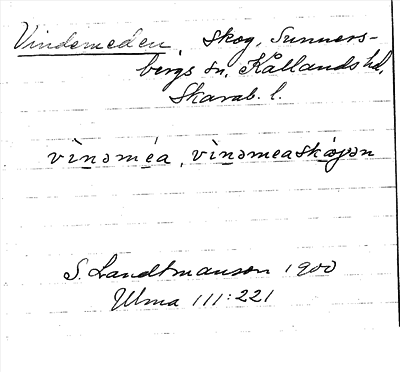 Vindemeden, skog, Sunners-
bergs sn, Kållands hd,
Skarab. l.
vìnəméa, vìnəmeaskó̱gən
S. Landtmanson 1900
Ulma 111:221